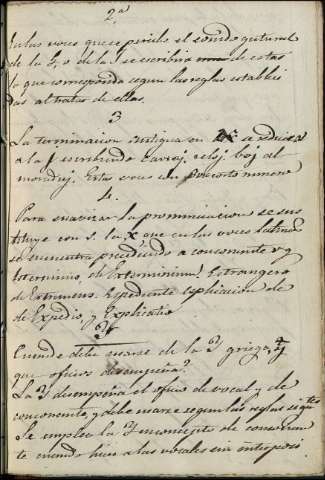 2.ª
En las voces que se percibe el sonido gutural
de la G, o de la J se escribira una de estas
la que corresponda segun las reglas estableci
das al tratar de ellas.
3
La terminacion antigua en X se reduce
a la J escribiendo carcaj, reloj, boj, al
moraduj. Estas voces son por corto numero
4.
Para suavizar la pronunciacion se sus
tituye con S. la X que en las voces latinas
se encuentra precediendo a consonante v. g.
Esterminio, de Exterminium! Estrangero
de Extraneus. Espediente esplicacion de
de Expedio, y Explicatio
Y
Cuando debe usarse de la Y griega, y
que oficios desempeña.
La Y desempeña el oficio de vocal y de
consonante, y debe usarse segun las reglas sigtes
Se emplea la Y en concepto de consonan
te cuando hiere a las vocales sin interposi